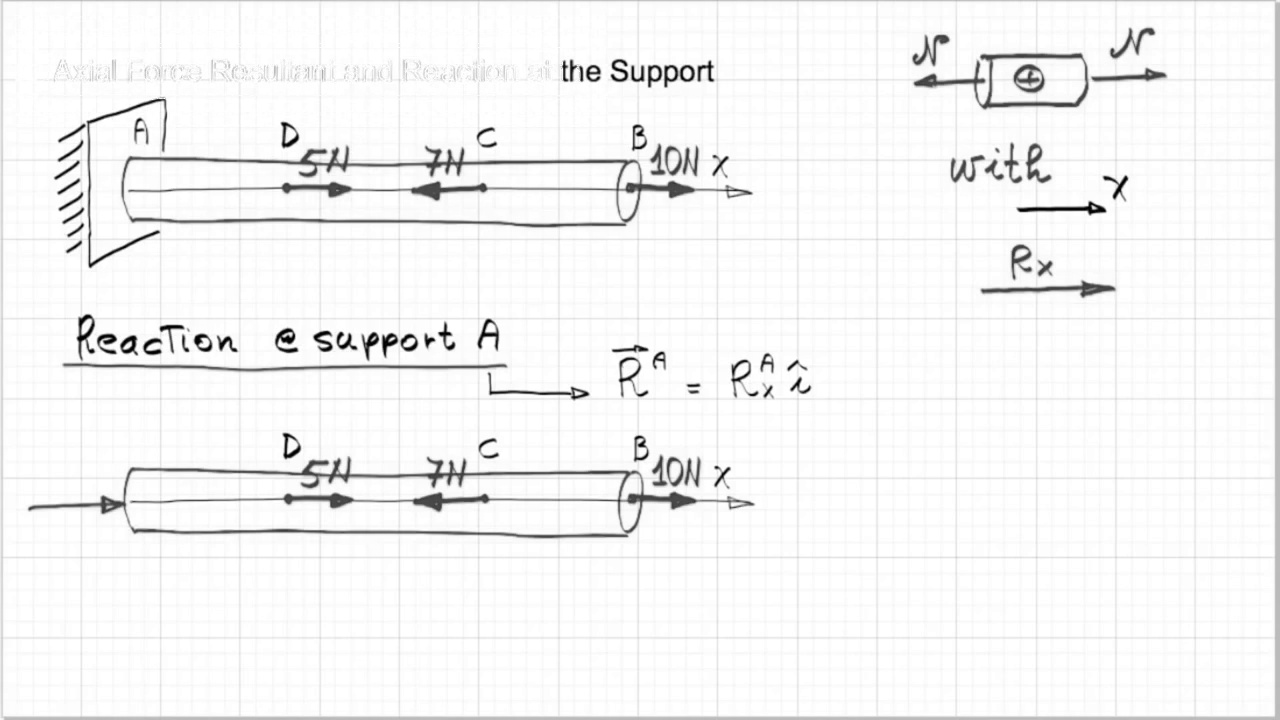 Axial Force Resultant and Reaction at the Support
N N
⊕
A D 5N 7N C B 10N x
with
x
Rx
Reaction @ support A
R⃗ᴬ = Rₓᴬ î
D 5N 7N C B 10N x